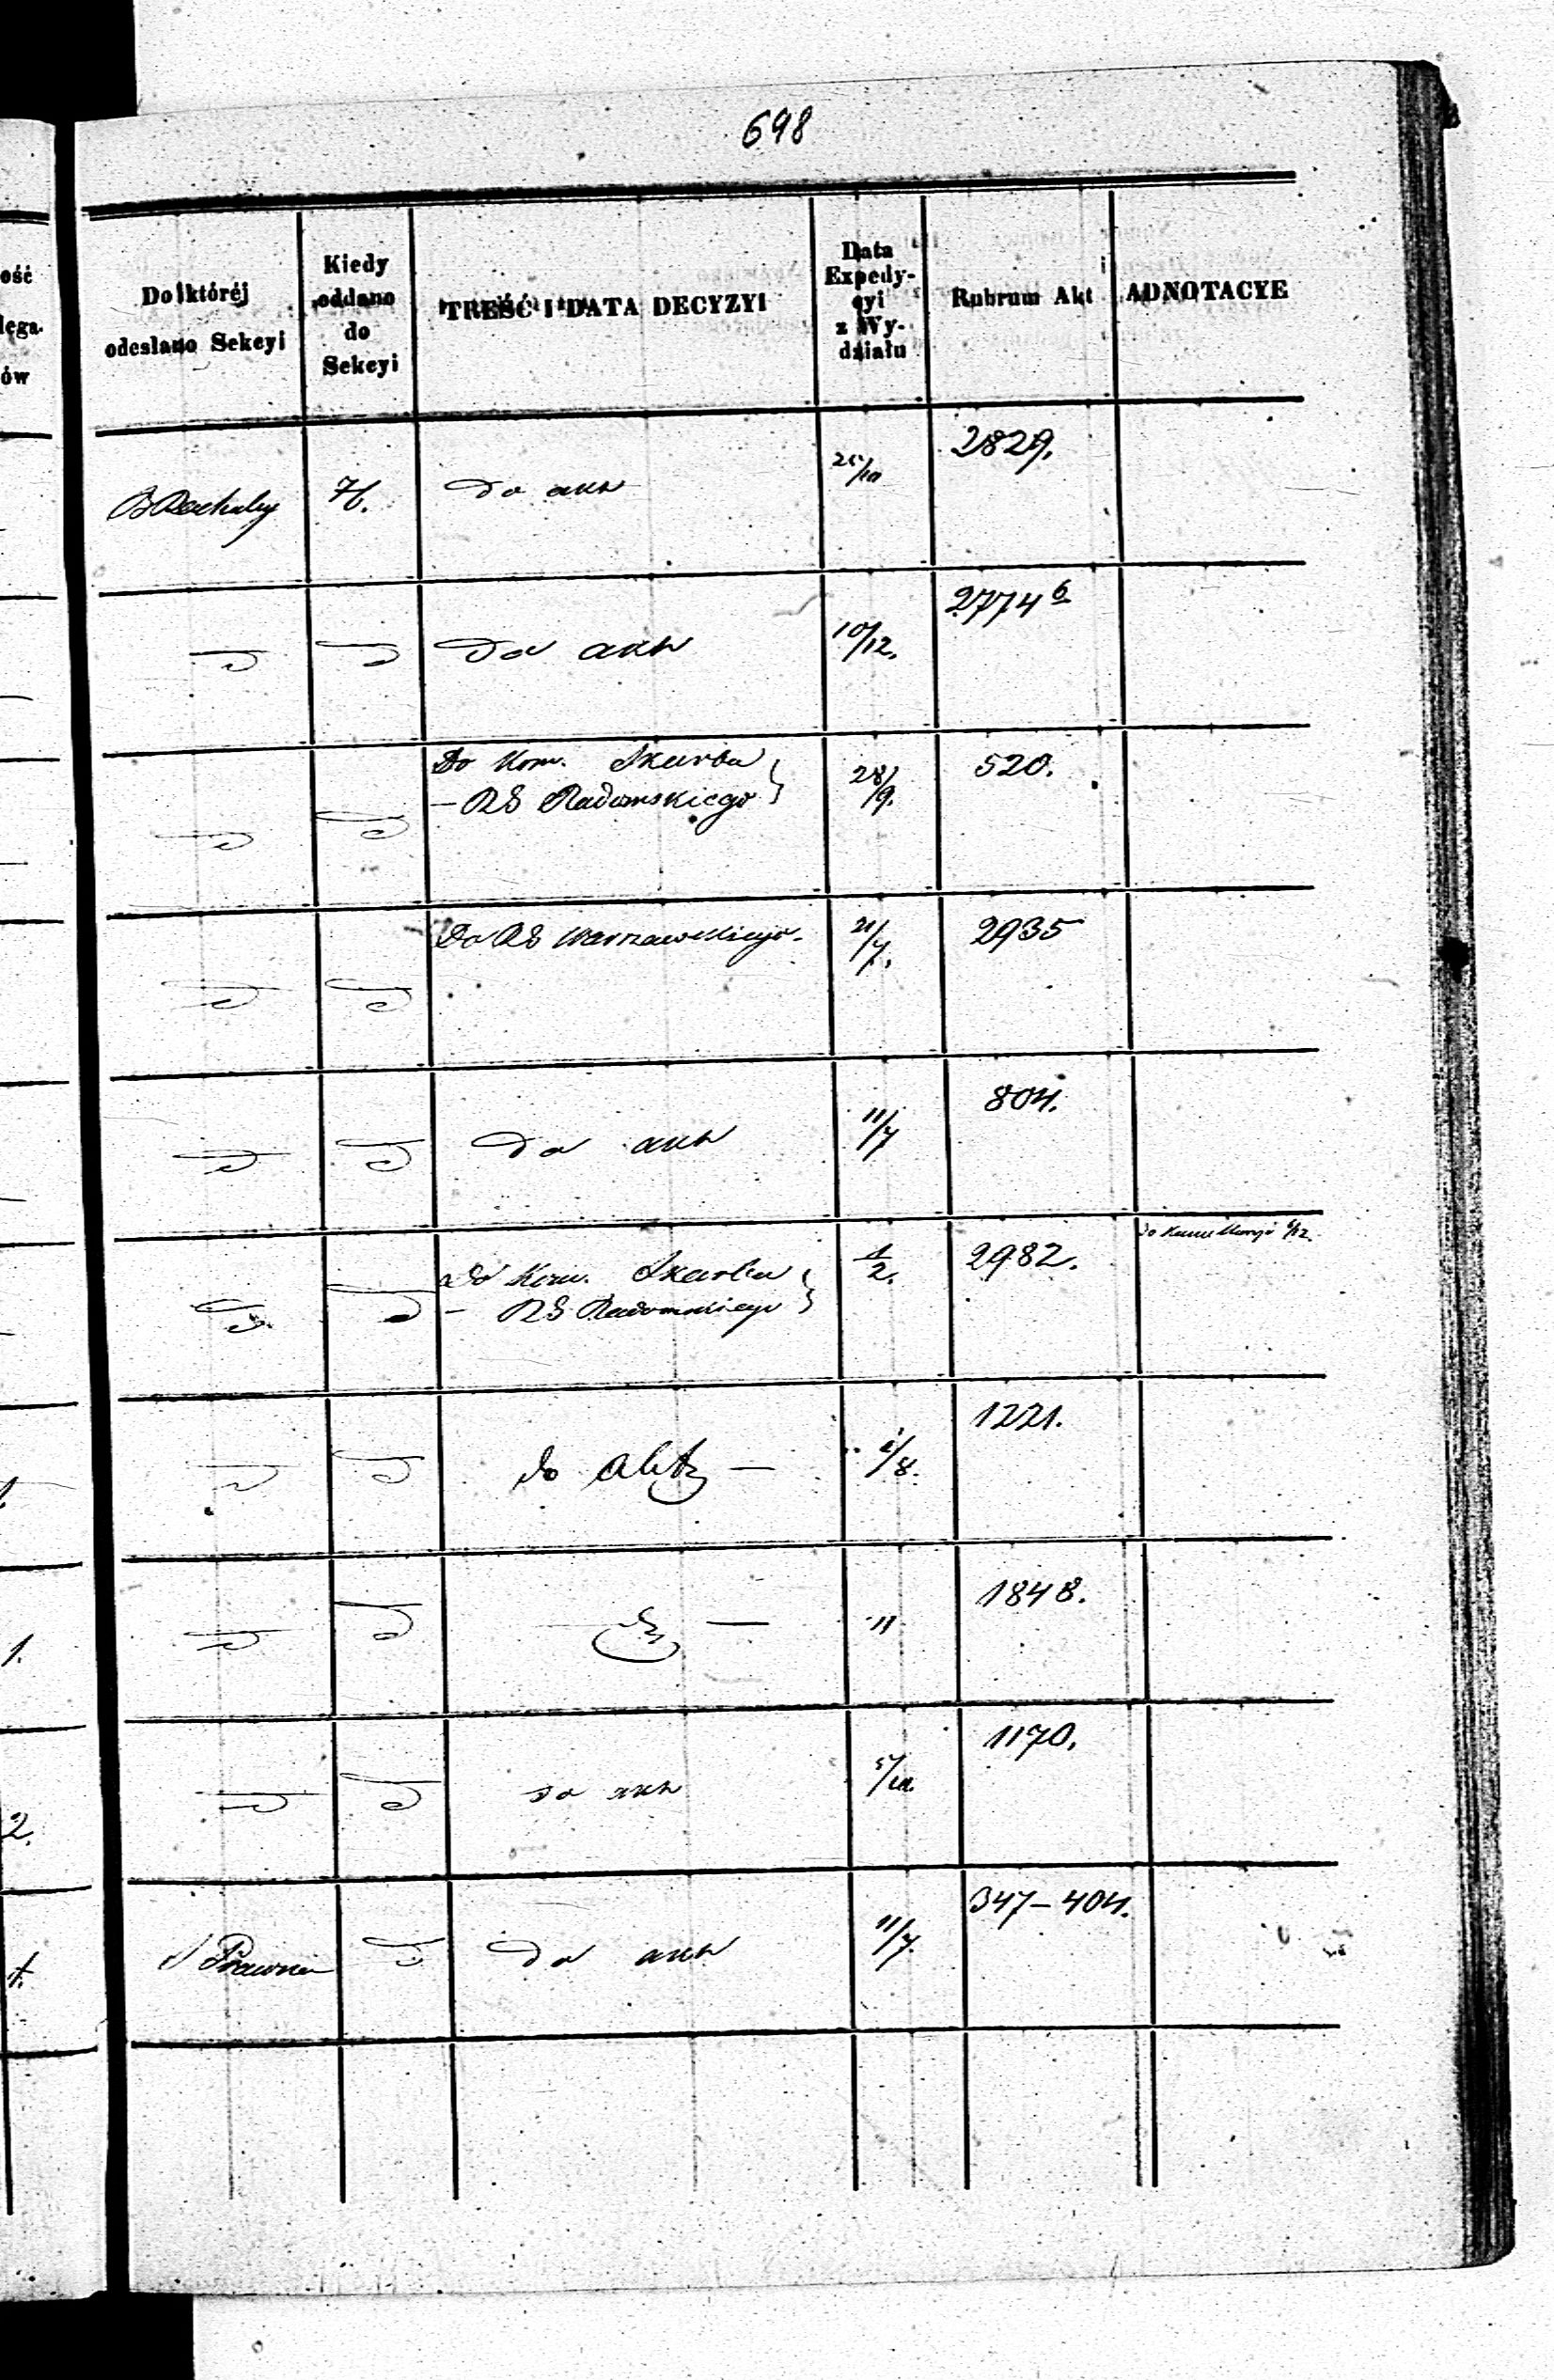 698
ość
lęga-
ów
Do którój
odesłano Sekcyi
Kiedy
oddano
do
Sekcyi
TREŚĆ I DATA DECYZYI
Data
Expedy-
cyi
z Wy-
działu
Rubrum Akt
ADNOTACYE
do akt
2829.
do akt
10/12.
2774 b
Do Kom. Skarbu
– RG Radomskiego
28/9.
520.
Do RG Warszawskiego.
21/7.
2935
do akt
11/7
804.
Do Kom. Skarbu
– RG Radomskiego
1/2.
2982.
do akt —
/8.
1221.
—
"
1848.
1.
do akt
1170.
2.
Prawna
do akt
11/7.
347–404.